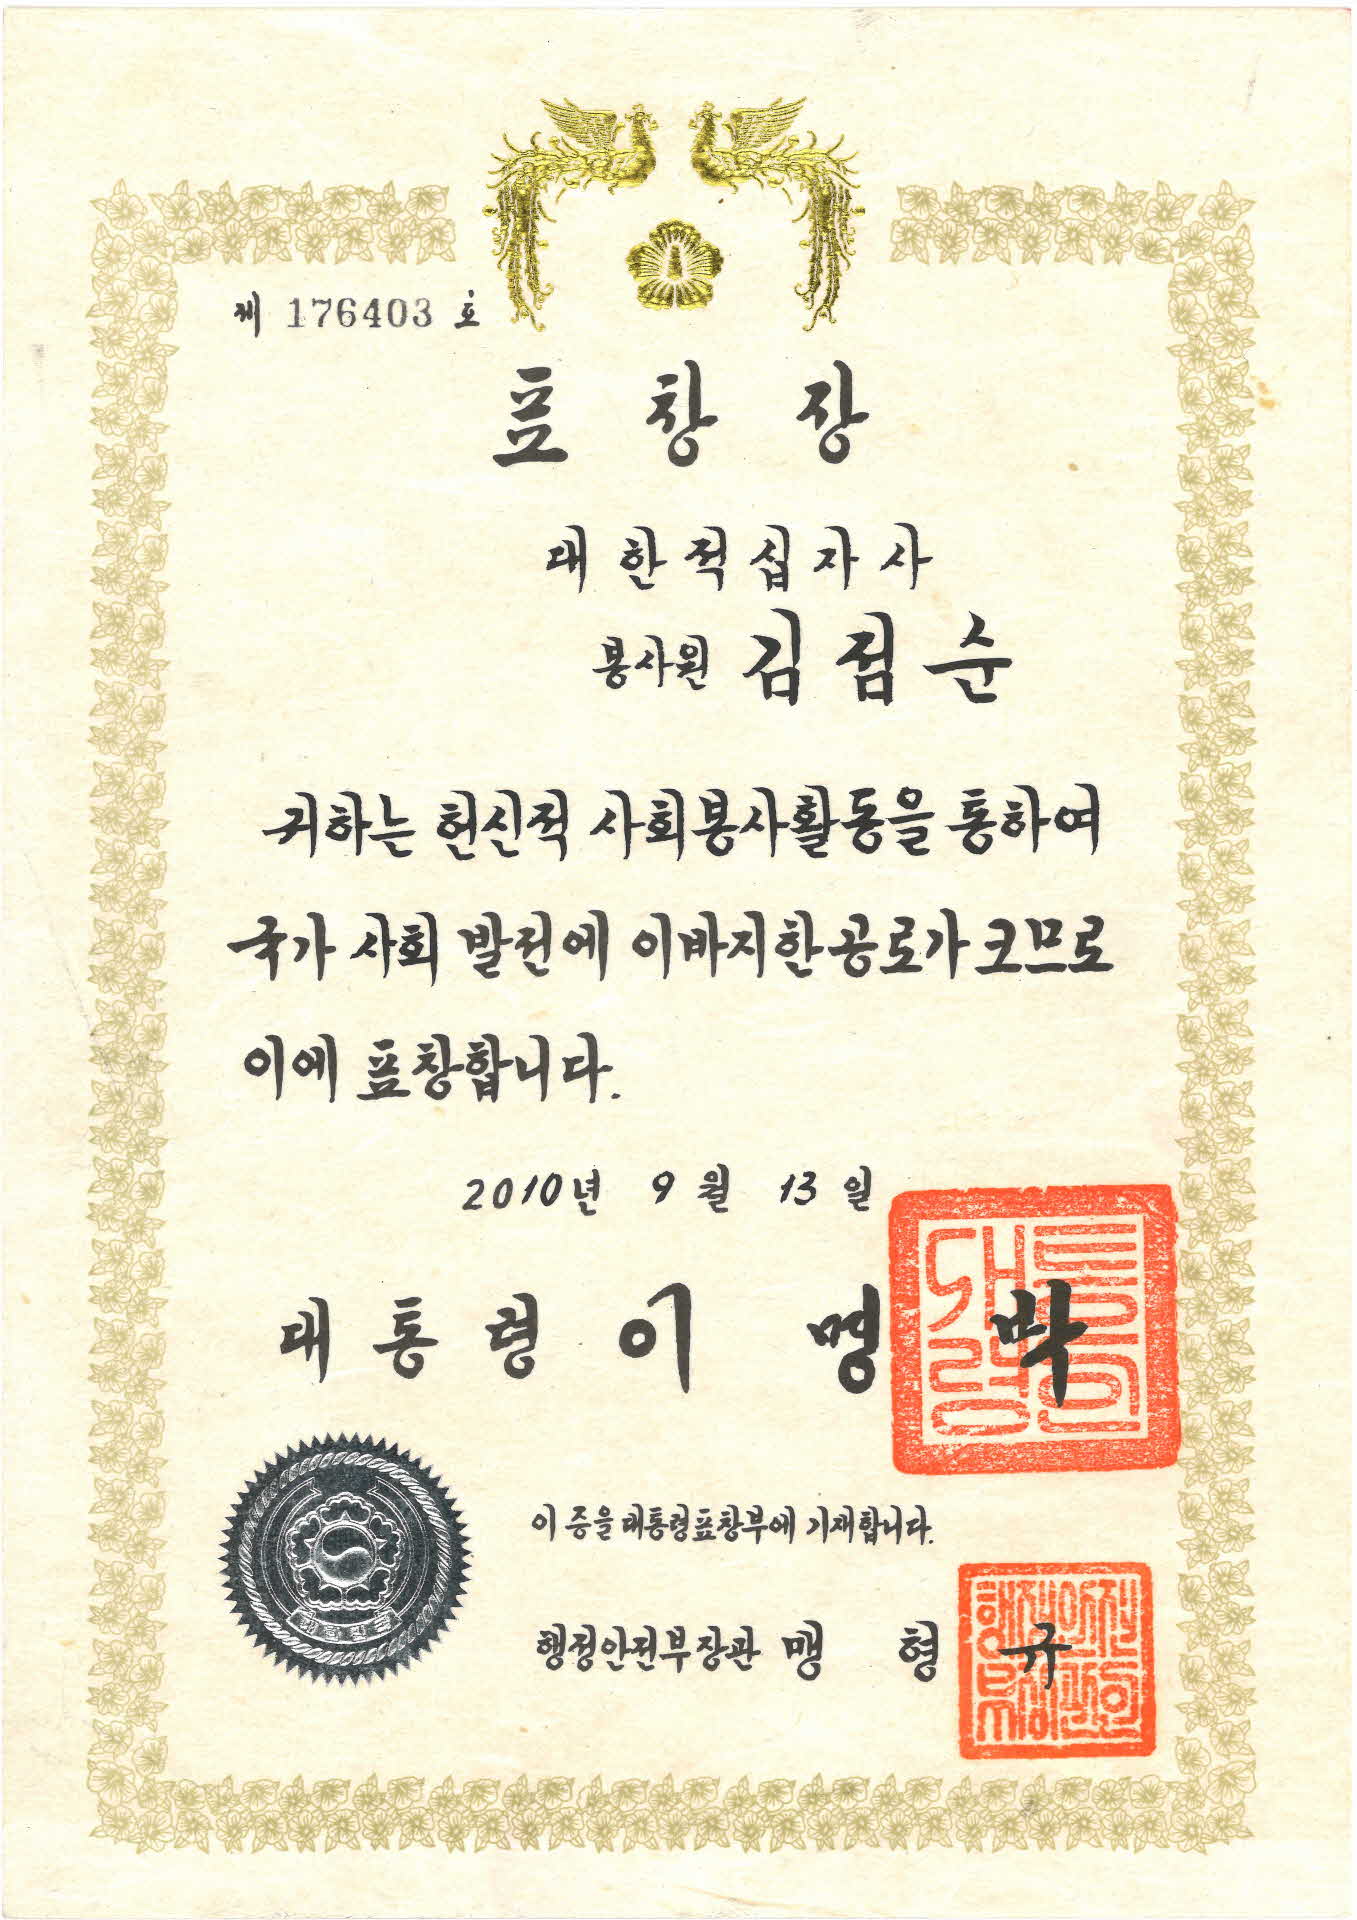 제 176403 호
표창장
대한적십자사
봉사원 김점순
귀하는 헌신적 사회봉사활동을 통하여
국가 사회 발전에 이바지한 공로가 크므로
이에 표창합니다.
2010년 9월 13일
대통령 이명박
대통령의인
이 증을 대통령표창부에 기재합니다.
행정안전부장관 맹형규
대한민국